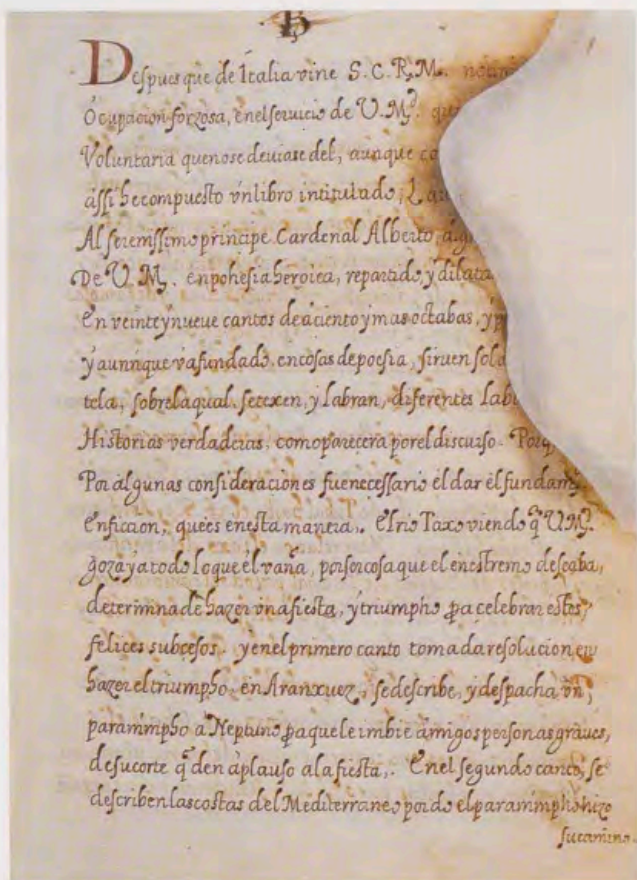 Despues que de Italia vine S.C.R.M.
Ocupacion forzosa, en el seruicio de V.Mᵈ.
Voluntaria que nose deuiase del, aunque
assi he compuesto vn libro intitulado,
Al serenissimo principe Cardenal Alberto,
De V.M. en pohesia heroica, repartido, y dilata
En veinte y nueue cantos de a ciento y mas octabas, y
y aunnque va fundado, en cosas de poesia, siruen solo
tela, sobre la qual, se texen, y labran, diferentes
Historias verdaderas, como parecera por el discurso.
Por algunas consideraciones fue necessario el dar el fundam
En ficcion, que es en esta maneria,. El rio Taxo viendo q̃ V.Mᵈ.
goza ya todo lo que el vaña, por ser cosa que el en estremo deseaba,
determina de hazer vna fiesta, y triumpho pa celebrar estos
felices subcesos. y en el primero canto tomada resolucion en
hazer el triumpho, en Aranxuez, se describe, y despacha vn,
paranimpho a Neptuno pa que le imbie amigos personas graues,
de su corte q̃ den aplauso a la fiesta,. En el segundo canto, se
describen las costas del Mediterraneo por do el paranimpho hizo
su camino.